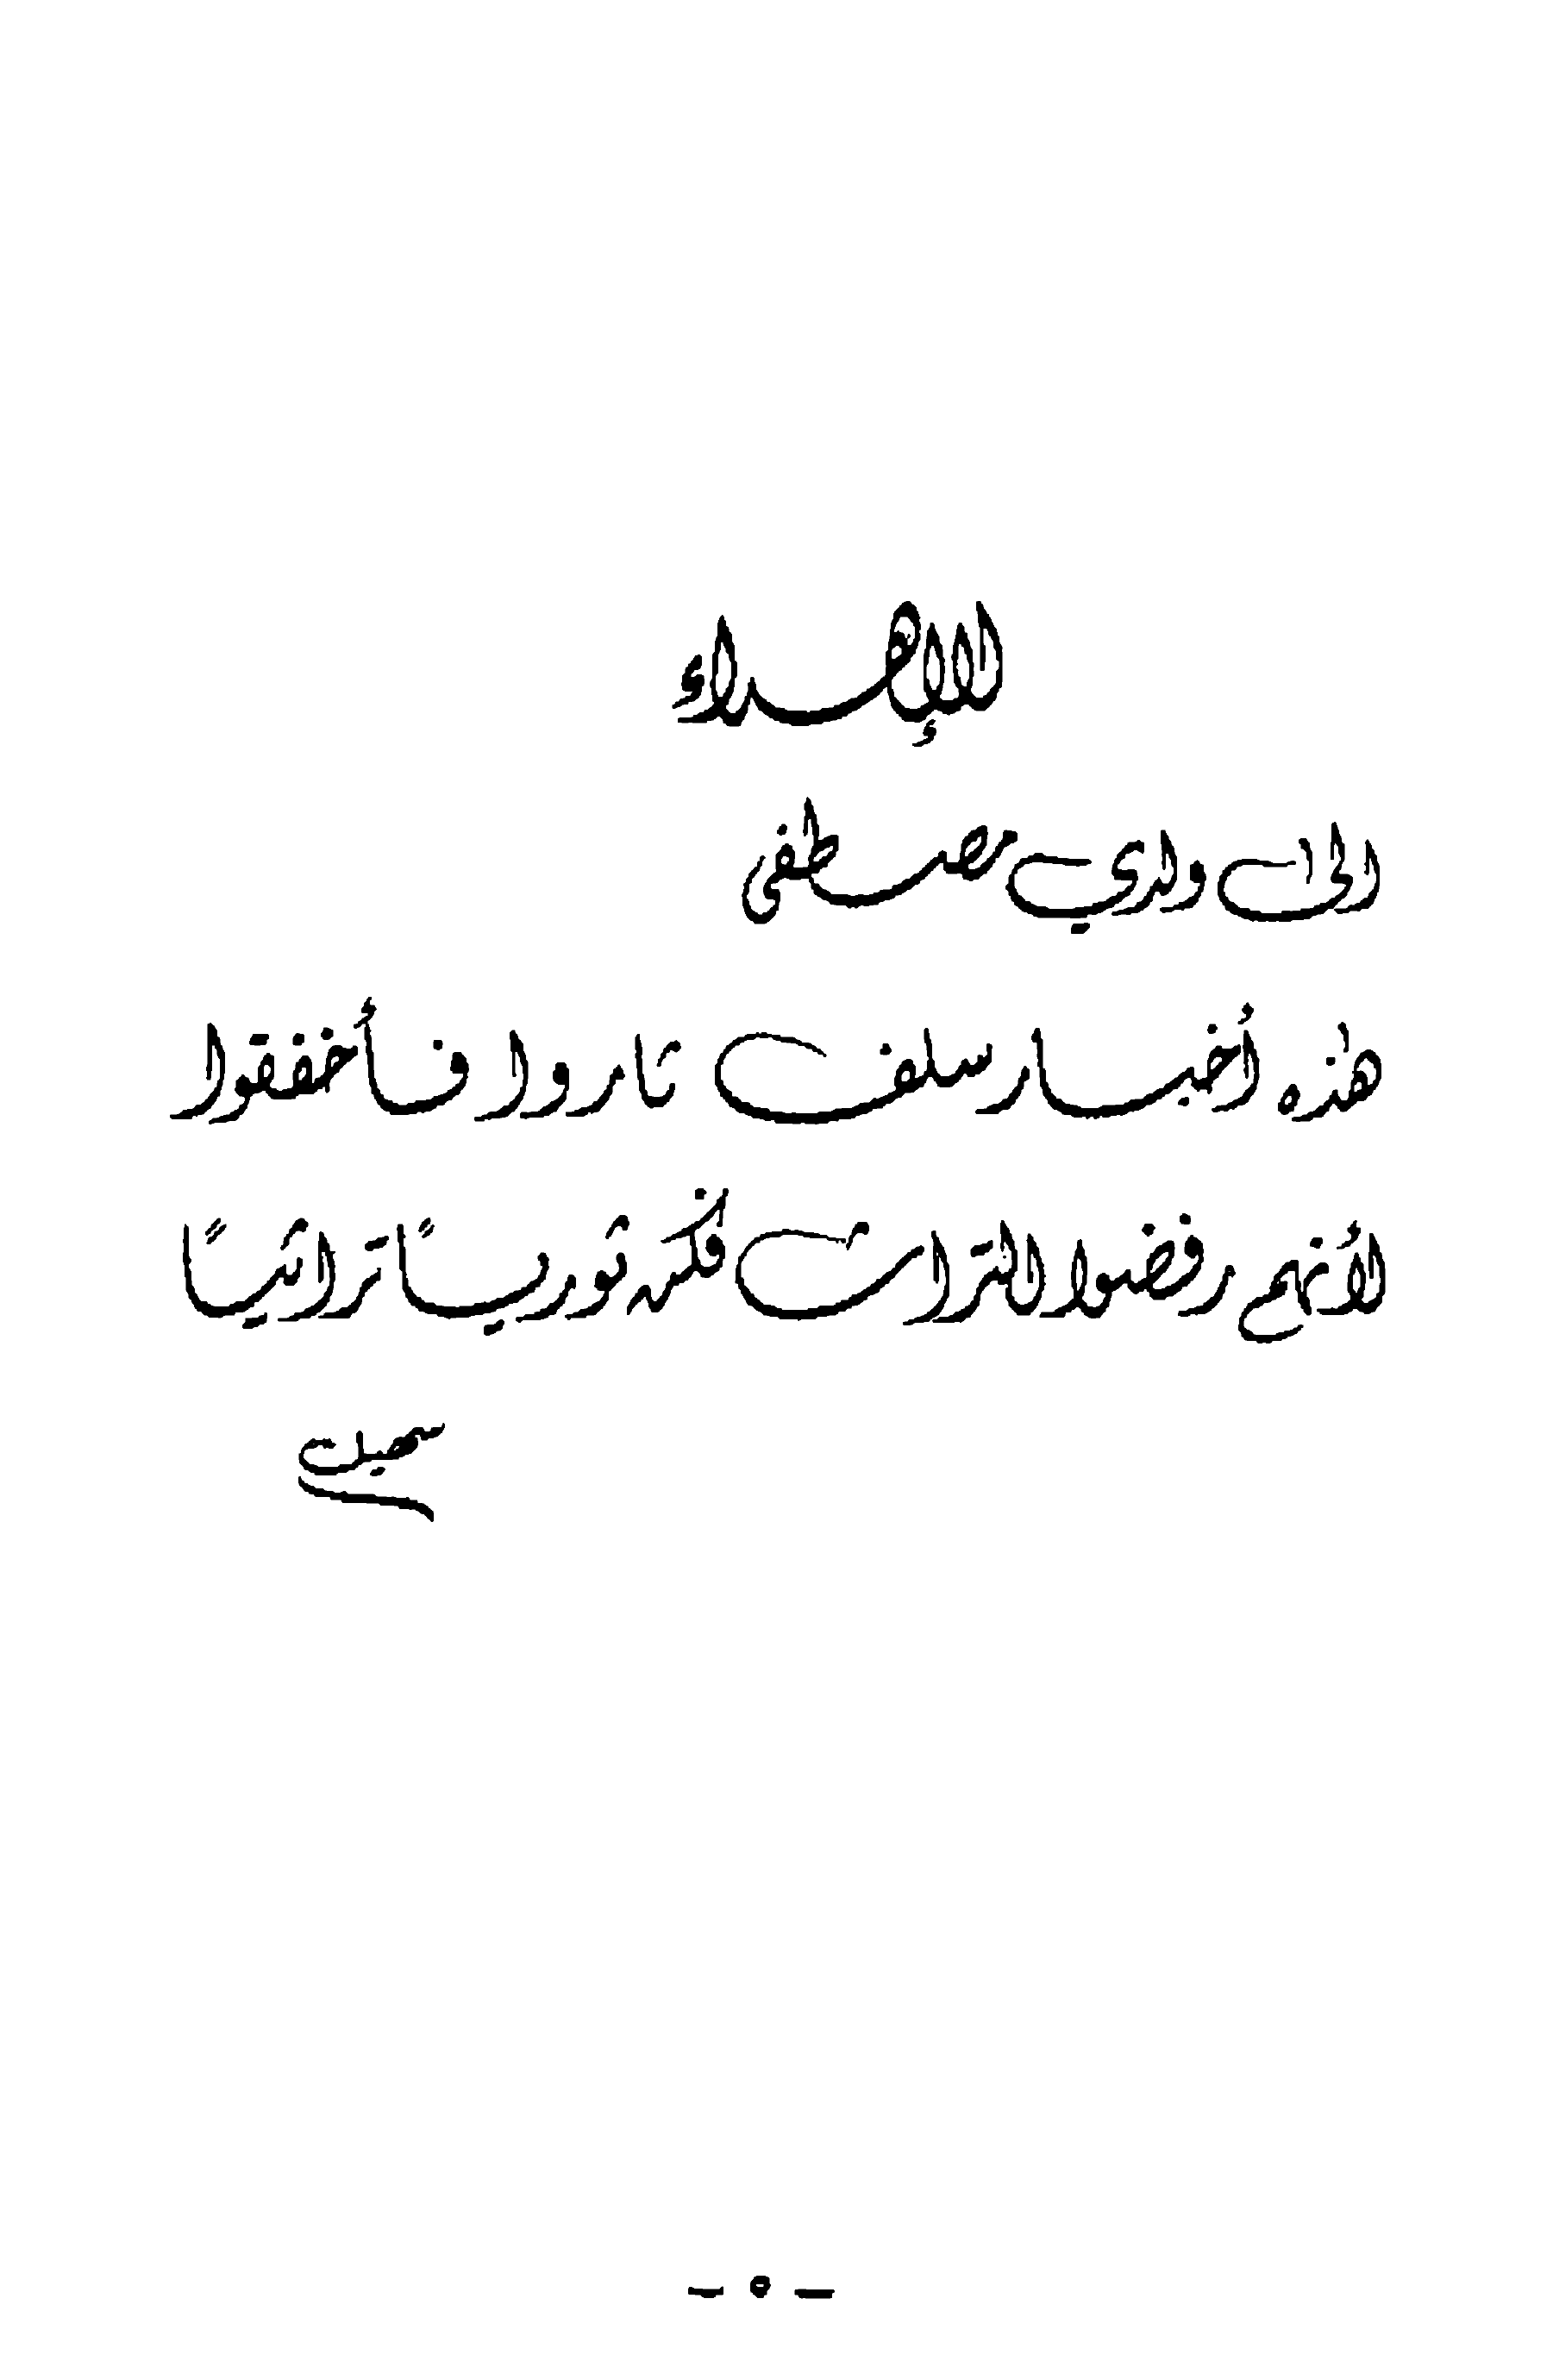 الإهداء
الى ولدي مصطفى
هذه أخبار سلف ثاروا فأخفقوا
لأنهم رفضوا التراث فكن ثوريًا تراثيًا
سهيل
- ٥ -